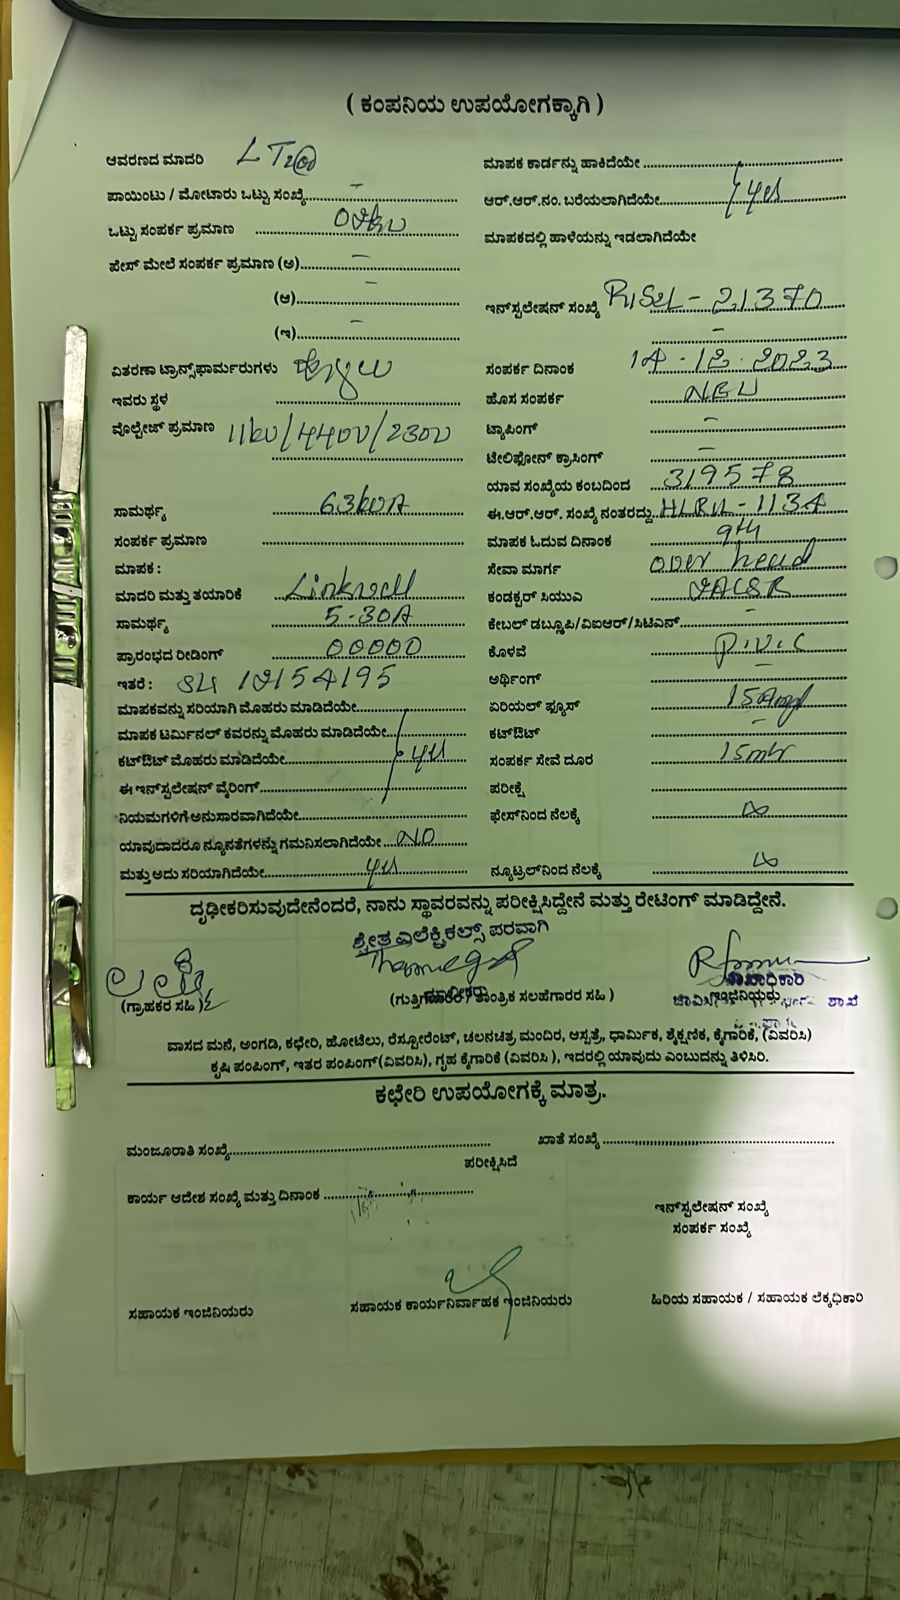 ( ಕಂಪನಿಯ ಉಪಯೋಗಕ್ಕಾಗಿ )
ಆವರಣದ ಮಾದರಿ LT2
ಪಾಯಿಂಟು / ಮೋಟಾರು ಒಟ್ಟು ಸಂಖ್ಯೆ -
ಒಟ್ಟು ಸಂಪರ್ಕ ಪ್ರಮಾಣ
ಫೇಸ್ ಮೇಲೆ ಸಂಪರ್ಕ ಪ್ರಮಾಣ (ಅ) -
(ಆ) -
(ಇ) -
ವಿತರಣಾ ಟ್ರಾನ್ಸ್‌ಫಾರ್ಮರುಗಳು
ಇವರು ಸ್ಥಳ
ವೊಲ್ಟೇಜ್ ಪ್ರಮಾಣ 11kv/440v/230v
ಸಾಮರ್ಥ್ಯ 63kVA
ಸಂಪರ್ಕ ಪ್ರಮಾಣ
ಮಾಪಕ :
ಮಾದರಿ ಮತ್ತು ತಯಾರಿಕೆ Linkwell
ಸಾಮರ್ಥ್ಯ 5-30A
ಪ್ರಾರಂಭದ ರೀಡಿಂಗ್ 00000
ಇತರೆ :
ಮಾಪಕವನ್ನು ಸರಿಯಾಗಿ ಮೊಹರು ಮಾಡಿದೆಯೇ
ಮಾಪಕ ಟರ್ಮಿನಲ್ ಕವರನ್ನು ಮೊಹರು ಮಾಡಿದೆಯೇ
ಕಟ್‌ಔಟ್ ಮೊಹರು ಮಾಡಿದೆಯೇ yes
ಈ ಇನ್‌ಸ್ಟಲೇಷನ್ ವೈರಿಂಗ್
ನಿಯಮಗಳಿಗೆ ಅನುಸಾರವಾಗಿದೆಯೇ
ಯಾವುದಾದರೂ ನ್ಯೂನತೆಗಳನ್ನು ಗಮನಿಸಲಾಗಿದೆಯೇ NO
ಮತ್ತು ಅದು ಸರಿಯಾಗಿದೆಯೇ yes
ಮಾಪಕ ಕಾರ್ಡನ್ನು ಹಾಕಿದೆಯೇ
ಆರ್.ಆರ್.ನಂ. ಬರೆಯಲಾಗಿದೆಯೇ yes
ಮಾಪಕದಲ್ಲಿ ಹಾಳೆಯನ್ನು ಇಡಲಾಗಿದೆಯೇ
ಇನ್‌ಸ್ಟಲೇಷನ್ ಸಂಖ್ಯೆ - 21370
-
ಸಂಪರ್ಕ ದಿನಾಂಕ 14-12-2023
ಹೊಸ ಸಂಪರ್ಕ NEW
ಟ್ಯಾಪಿಂಗ್ -
ಟೇಲಿಫೋನ್ ಕ್ರಾಸಿಂಗ್ -
ಯಾವ ಸಂಖ್ಯೆಯ ಕಂಬದಿಂದ 319578
ಈ.ಆರ್.ಆರ್. ಸಂಖ್ಯೆ ನಂತರದ್ದು
ಮಾಪಕ ಓದುವ ದಿನಾಂಕ 9th
ಸೇವಾ ಮಾರ್ಗ over head
ಕಂಡಕ್ಟರ್ ಸಿಯುವಿ
ಕೇಬಲ್ ಡಬ್ಲ್ಯೂಪಿ/ವಿಐಆರ್/ಸಿಟಿಎನ್ -
ಕೊಳವೆ P.V.C
ಅರ್ಥಿಂಗ್ -
ಏರಿಯಲ್ ಫ್ಯೂಸ್ 15Amp
ಕಟ್‌ಔಟ್ -
ಸಂಪರ್ಕ ಸೇವೆ ದೂರ 15mtr
ಪರೀಕ್ಷೆ
ಫೇಸ್‌ನಿಂದ ನೆಲಕ್ಕೆ ∞
ನ್ಯೂಟ್ರಲ್‌ನಿಂದ ನೆಲಕ್ಕೆ ∞
ದೃಢೀಕರಿಸುವುದೇನೆಂದರೆ, ನಾನು ಸ್ಥಾವರವನ್ನು ಪರೀಕ್ಷಿಸಿದ್ದೇನೆ ಮತ್ತು ರೇಟಿಂಗ್ ಮಾಡಿದ್ದೇನೆ.
ಶ್ವೇತ ಎಲೆಕ್ಟ್ರಿಕಲ್ಸ್ ಪರವಾಗಿ
ಶಾಖಾಧಿಕಾರಿ
(ಗ್ರಾಹಕರ ಸಹಿ )
ತಾಂತ್ರಿಕ ಸಲಹೆಗಾರರ ಸಹಿ )
ಇಂಜಿನಿಯರು ಶಾಖೆ
ವಾಸದ ಮನೆ, ಅಂಗಡಿ, ಕಛೇರಿ, ಹೋಟೆಲು, ರೆಸ್ಟೋರೆಂಟ್, ಚಲನಚಿತ್ರ ಮಂದಿರ, ಆಸ್ಪತ್ರೆ, ಧಾರ್ಮಿಕ, ಶೈಕ್ಷಣಿಕ, ಕೈಗಾರಿಕೆ, (ವಿವರಿಸಿ)
ಕೃಷಿ ಪಂಪಿಂಗ್, ಇತರ ಪಂಪಿಂಗ್(ವಿವರಿಸಿ), ಗೃಹ ಕೈಗಾರಿಕೆ (ವಿವರಿಸಿ ), ಇದರಲ್ಲಿ ಯಾವುದು ಎಂಬುದನ್ನು ತಿಳಿಸಿರಿ.
ಕಛೇರಿ ಉಪಯೋಗಕ್ಕೆ ಮಾತ್ರ.
ಮಂಜೂರಾತಿ ಸಂಖ್ಯೆ ಖಾತೆ ಸಂಖ್ಯೆ
ಪರೀಕ್ಷಿಸಿದೆ
ಕಾರ್ಯ ಆದೇಶ ಸಂಖ್ಯೆ ಮತ್ತು ದಿನಾಂಕ
ಇನ್‌ಸ್ಟಲೇಷನ್ ಸಂಖ್ಯೆ
ಸಂಪರ್ಕ ಸಂಖ್ಯೆ
ಸಹಾಯಕ ಇಂಜಿನಿಯರು ಸಹಾಯಕ ಕಾರ್ಯನಿರ್ವಾಹಕ ಇಂಜಿನಿಯರು ಹಿರಿಯ ಸಹಾಯಕ / ಸಹಾಯಕ ಲೆಕ್ಕಧಿಕಾರಿ